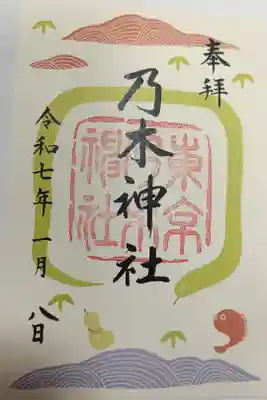 奉拝
乃木神社
東京乃木神社
令和七年一月八日